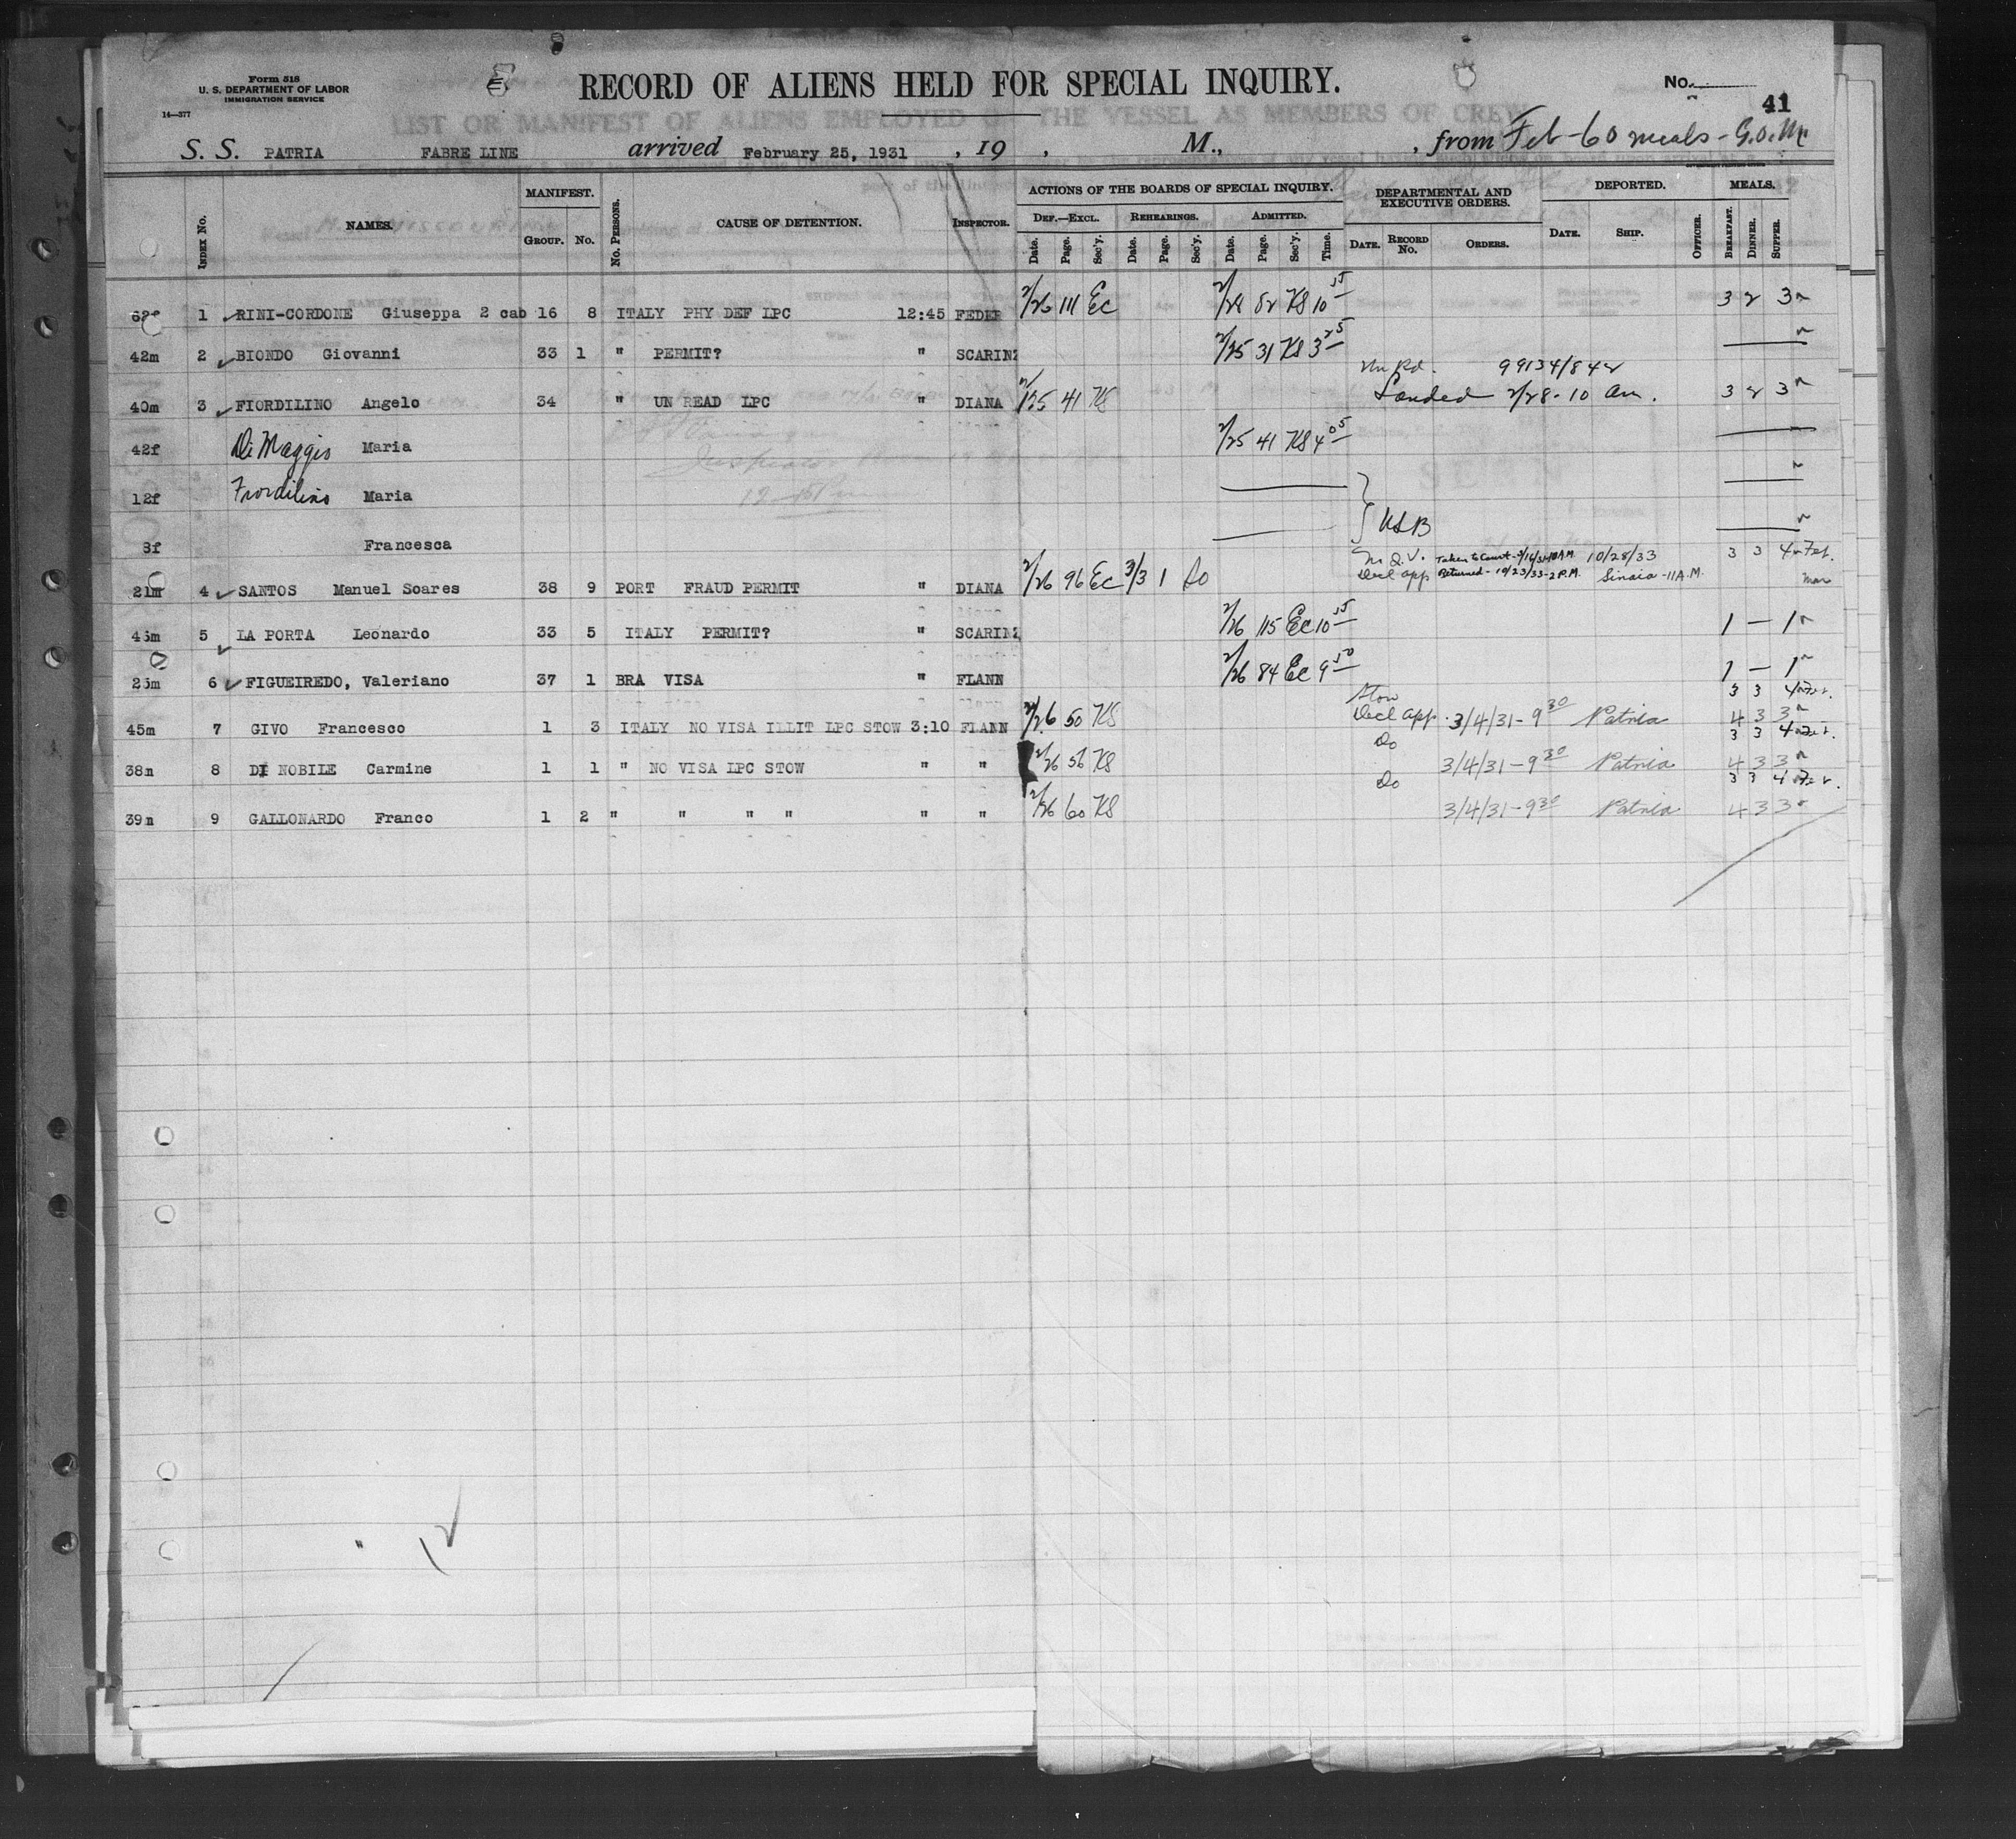 Form 518
U. S. DEPARTMENT OF LABOR
IMMIGRATION SERVICE
14—377
RECORD OF ALIENS HELD FOR SPECIAL INQUIRY.
No.
41
LIST OR MANIFEST OF ALIENS EMPLOYED ON THE VESSEL AS MEMBERS OF CREW
S. S. PATRIA FABRE LINE arrived February 25, 1931 , 19 , M., , from Feb - 60 meals - G.O.M.
INDEX No. NAMES. MANIFEST. GROUP. No. No. PERSONS. CAUSE OF DETENTION. INSPECTOR. ACTIONS OF THE BOARDS OF SPECIAL INQUIRY. DEPARTMENTAL AND EXECUTIVE ORDERS. DEPORTED. MEALS.
DEF.—EXCL. REHEARINGS. ADMITTED.
Date. Page. Sec'y. Date. Page. Sec'y. Date. Page. Sec'y. Time. DATE. RECORD No. ORDERS. DATE. SHIP. OFFICER. BREAKFAST. DINNER. SUPPER.
1 RINI-CORDONE Giuseppa 2 cab 16 8 ITALY PHY DEF LPC 12:45 FEDER 2/26 111 Ec 2/28 52 KS 10 15 3 2 3
42m 2 BIONDO Giovanni 33 1 " PERMIT? " SCARINZ 2/25 31 KS 3 25
99134/842
40m 3 FIORDILINO Angelo 34 " UN READ LPC " DIANA 2/25 41 KS Landed 2/28 - 10 am. 3 2 3
42f Di Maggio Maria 2/25 41 KS 4 05
12f Fiordilino Maria
8f Francesca USB
N. Q. V. Taken to Court - 3/16/31-10 A.M. 10/28/33 3 3 4 Feb.
21m 4 SANTOS Manuel Soares 38 9 PORT FRAUD PERMIT " DIANA 2/26 96 Ec 3/3 1 Decl app Returned - 10/23/33 - 2 P.M. Sinaia - 11 A.M. Mar
45m 5 LA PORTA Leonardo 33 5 ITALY PERMIT? " SCARINZ 2/26 115 Ec 10 15 1 — 1
25m 6 FIGUEIREDO, Valeriano 37 1 BRA VISA " FLANN 2/26 84 Ec 9 50 1 — 1
Stow 3 3 4 Feb.
45m 7 GIVO Francesco 1 3 ITALY NO VISA ILLIT LPC STOW 3:10 FLANN 2/26 50 KS Decl app. 3/4/31 - 9 30 Patria 4 3 3
Do 3 3 4 Feb.
38m 8 DI NOBILE Carmine 1 1 " NO VISA LPC STOW " " 2/26 56 KS 3/4/31 - 9 30 Patria 4 3 3
Do 3 3 4 Feb.
39m 9 GALLONARDO Franco 1 2 " " " " " " 2/26 60 KS 3/4/31 - 9 30 Patria 4 3 3
12